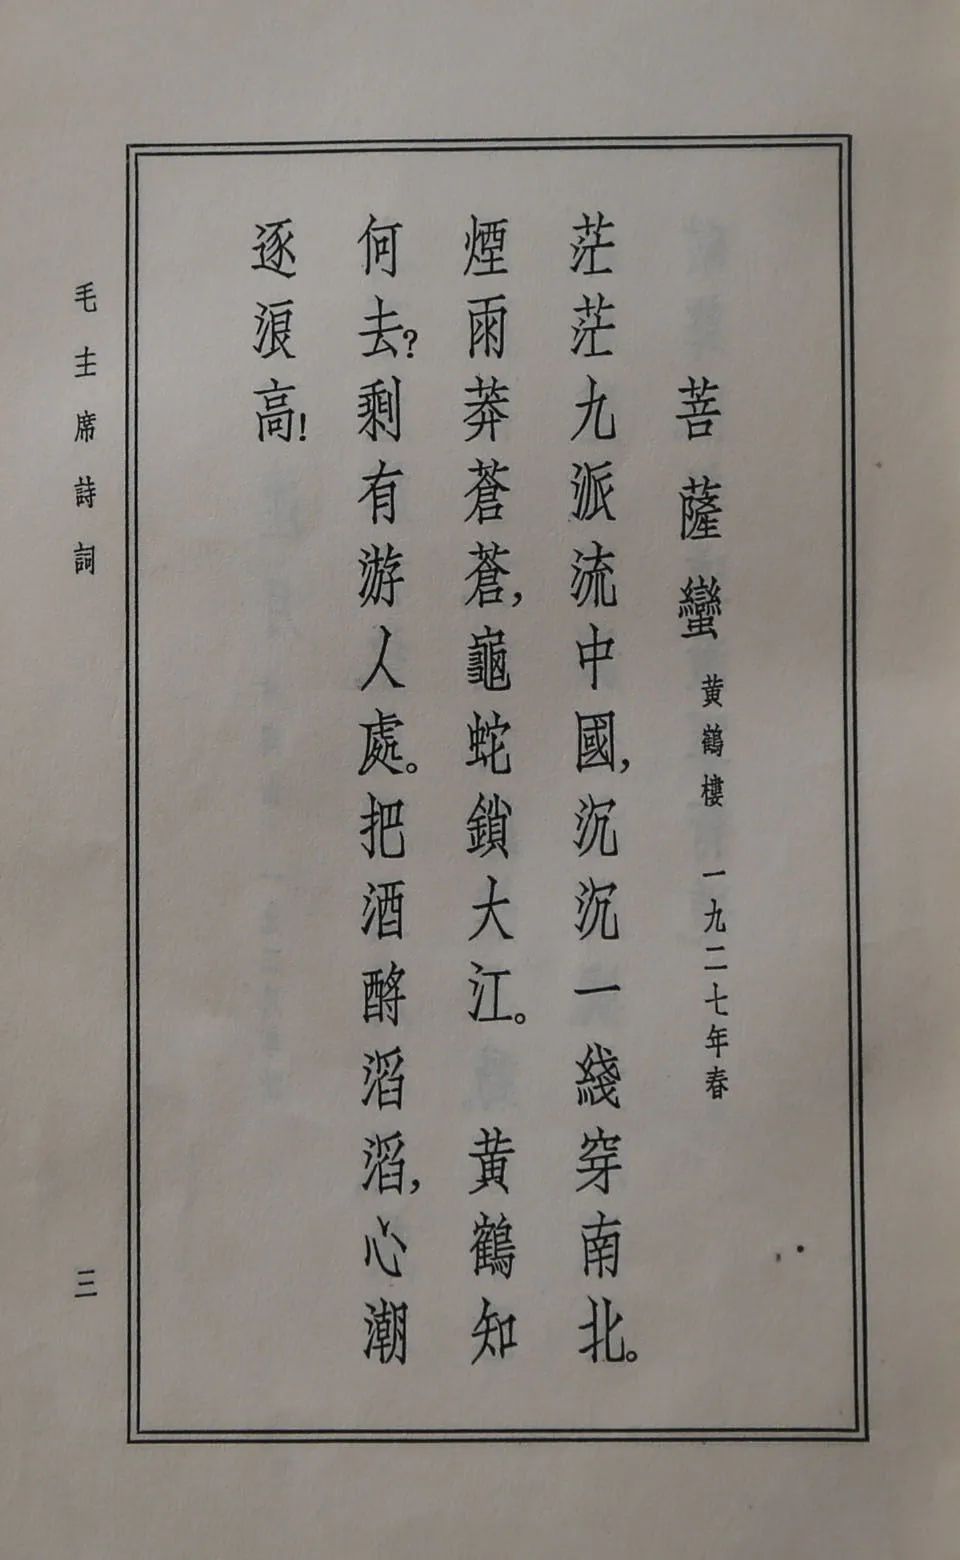 菩薩蠻 黄鶴樓 一九二七年春
茫茫九派流中國，沉沉一綫穿南北。
煙雨莽蒼蒼，龜蛇鎖大江。 黄鶴知
何去？剩有游人處。把酒酹滔滔，心潮
逐浪高！
毛主席詩詞
三